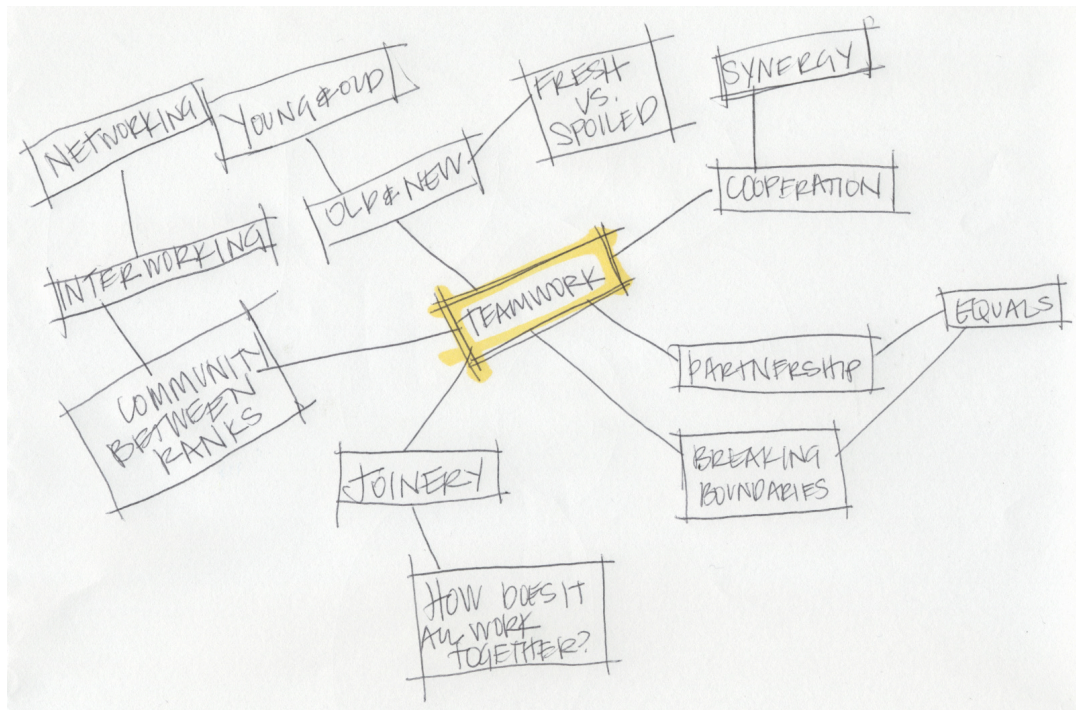 NETWORKING
YOUNG & OLD
FRESH
VS.
SPOILED
SYNERGY
OLD & NEW
COOPERATION
INTERWORKING
TEAMWORK
EQUALS
COMMUNITY
BETWEEN
RANKS
PARTNERSHIP
JOINERY
BREAKING
BOUNDARIES
HOW DOES IT
ALL WORK
TOGETHER?